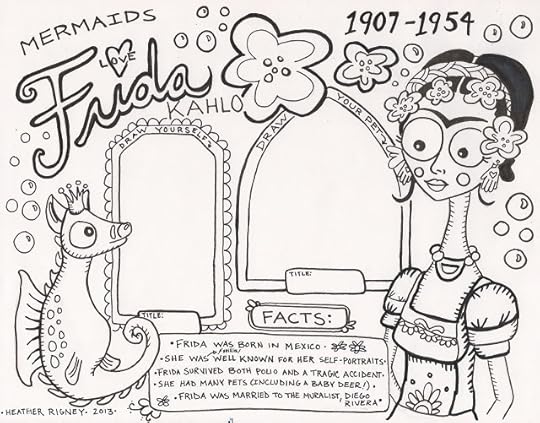 MERMAIDS
LOVE
Frida
KAHLO
1907-1954
DRAW YOURSELF
DRAW YOUR PET
TITLE:
TITLE:
FACTS:
• FRIDA WAS BORN IN MEXICO •
• SHE WAS WELL KNOWN FOR HER SELF-PORTRAITS •
• FRIDA SURVIVED BOTH POLIO AND A TRAGIC ACCIDENT •
• SHE HAD MANY PETS (INCLUDING A BABY DEER!) •
• FRIDA WAS MARRIED TO THE MURALIST, DIEGO RIVERA •
• HEATHER RIGNEY • 2013 •